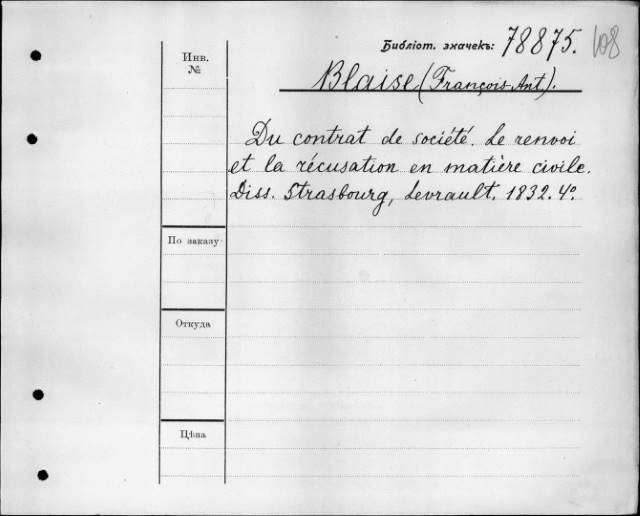 Библіот. значекъ: 78875. 108
Инв. №
Blaise (François-Ant.).
Du contrat de société. Le renvoi
et la récusation en matière civile.
Diss. Strasbourg, Levrault, 1832. 4º.
По заказу
Откуда
Цѣна